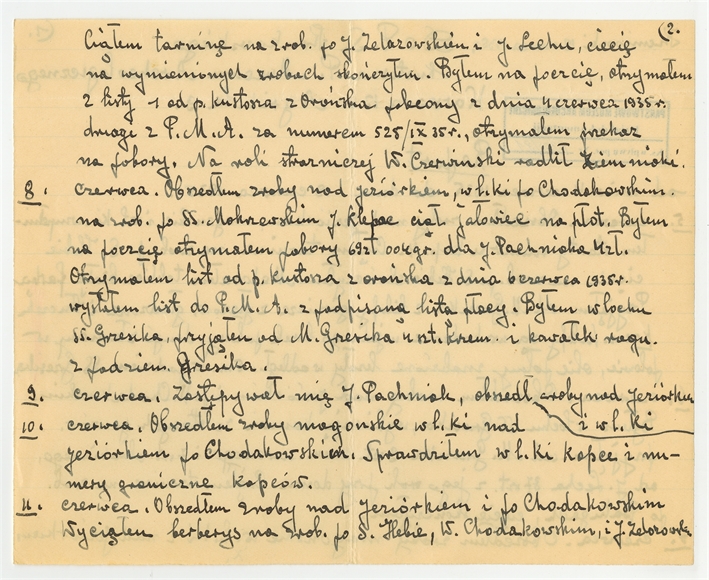 (2.
Ciąłem tarninę na zrob. po J. Żelazowskiem i J. Lechu, cięcię
na wymienionych zrobach skończyłem. Byłem na poczcię, otrzymałem
2 listy 1 od p. kustosza z Orońska polecony z dnia 4 czerwca 1935 r.
drugi z P.M.A. za numerem 525/IX 35 r., otrzymałem przekaz
na pobory. Na roli strażniczej W. Czerwiński radlił ziemniaki.
8. czerwca. Obszedłem zroby nad jeziórkiem, w ł.ki po Chodakowskim.
na zrob. po SS. Mokrzewskim J. Klepac ciął jałowiec na płot. Byłem
na poczcię otrzymałem pobory 69 zł 00 gr. dla J. Pachniaka 4 zł.
Otrzymałem list od p. kustosza z orońska z dnia 6 czerwca 1935 r.
wysłałem list do P.M.A. z podpisaną listą płacy. Byłem w lochu
SS. Grzesika, przyjąłem od M. Grzesika 4 szt. krzem. i kawałek rogu
z podziem. Grzesika.
9. czerwca. Zastępywał mię J. Pachniak, obszedł zroby nad jeziórkiem
i w ł. ki
10. czerwca. Obszedłem zroby magońskie w ł. ki nad
jeziórkiem po Chodakowskiem. Sprawdziłem w ł. ki kopce i nu-
mery graniczne kopców.
11. czerwca. Obszedłem zroby nad jeziórkiem i po Chodakowskim
Wyciąłem berberys na zrob. po S. Hebie, W. Chodakowskim, i J. Żelazowsk